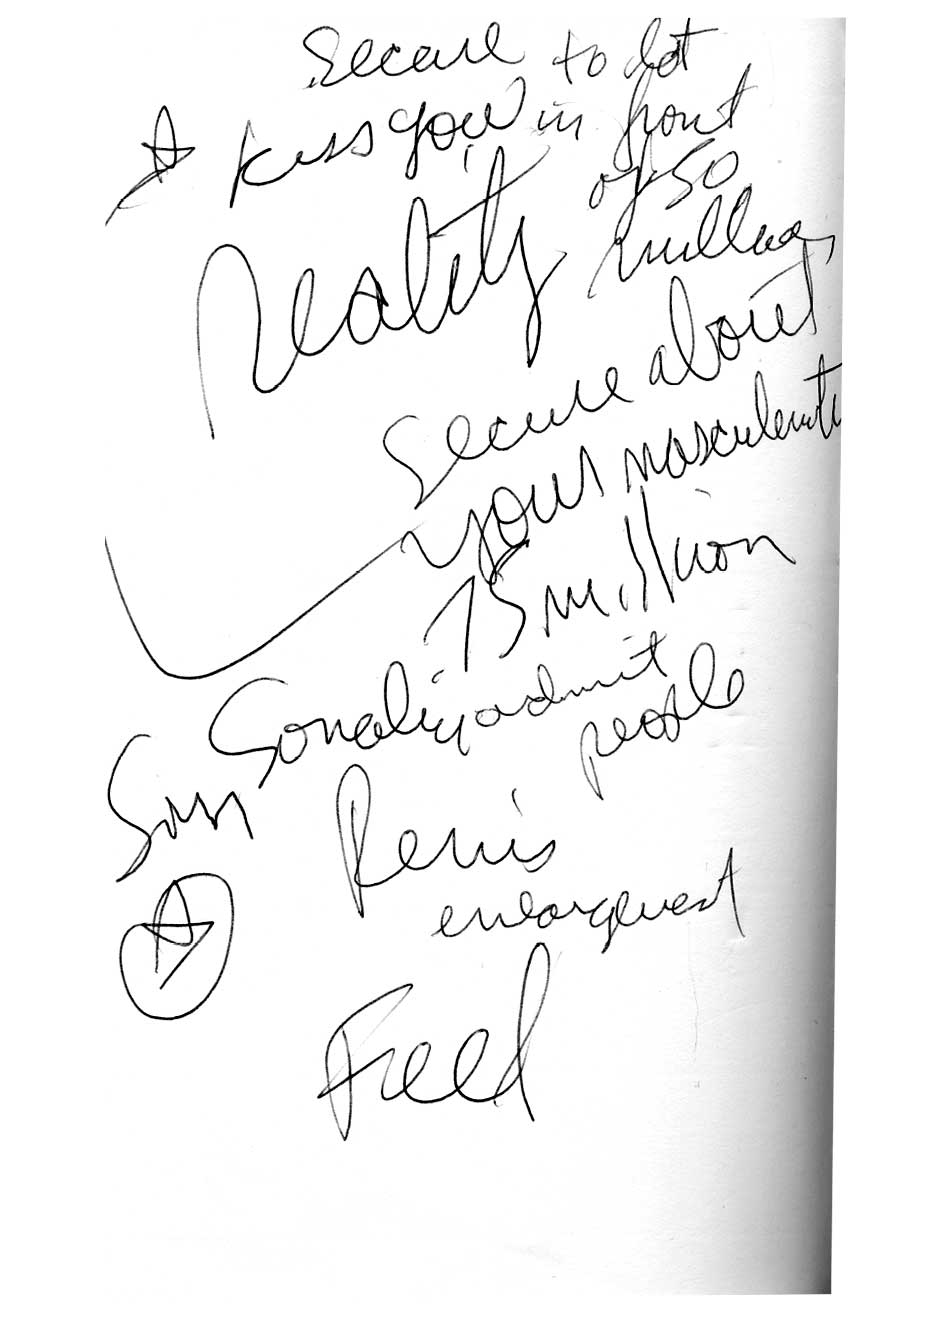 Secure to let
kiss you in front
of 50
Reality million
Secure about
your masculinity
75 million
admit
people
Penis
enlargement
Feel